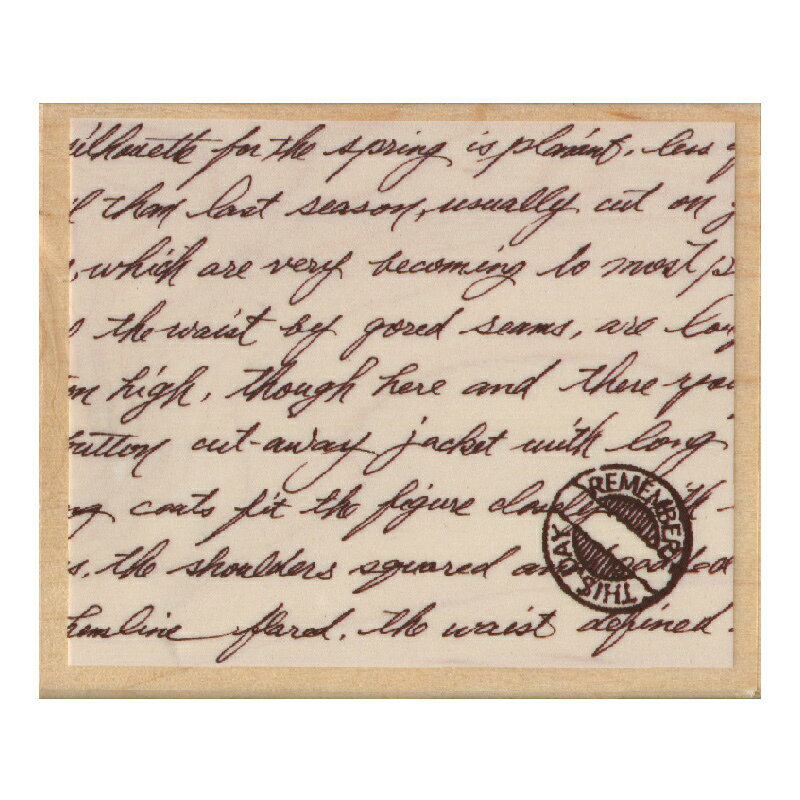 silhouette for the spring is pliant, less
than last season, usually cut on
, which are very becoming to most p
the waist by gored seams, are long
on high, though here and there you
button cut-away jacket with long
coats fit the figure closely with
s, the shoulders squared and padded
hemline flared, the waist defined.
REMEMBER
THIS DAY